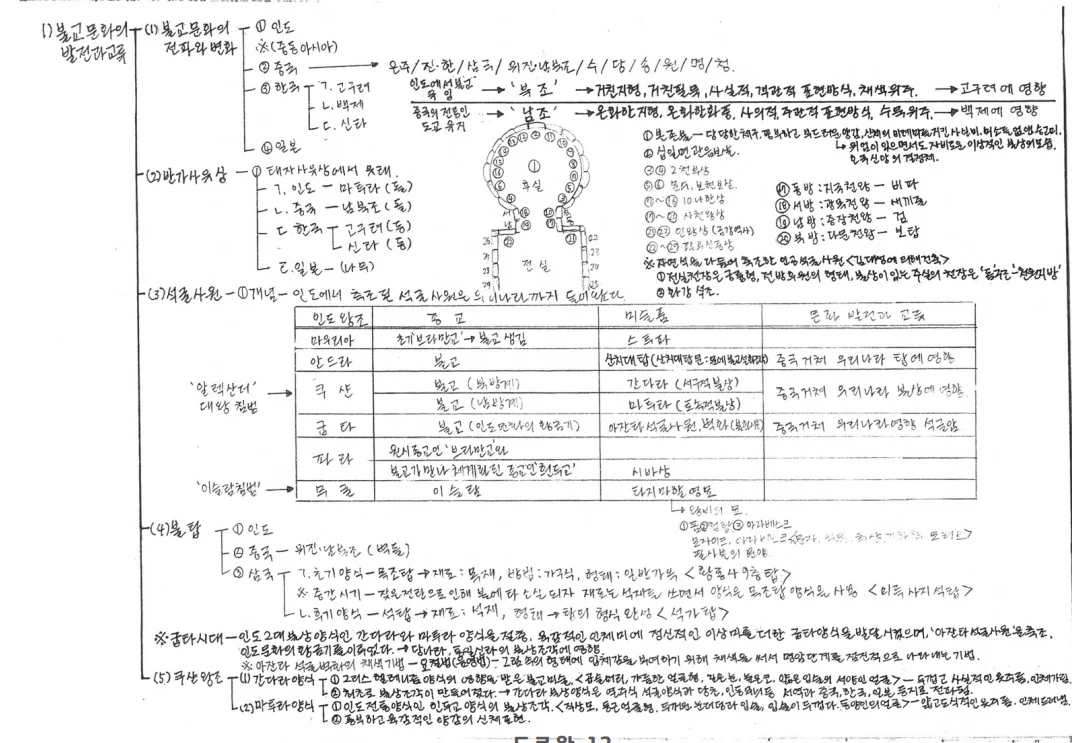 1) 불교문화의 발전과 교류
(1) 불교문화의 전파와 변화
① 인도
※(중동아시아)
② 중국 → 은주/진·한/삼국/위진·남북조/수/당/송/원/명/청.
③ 한국 ㄱ. 고구려
ㄴ. 백제
ㄷ. 신라
④ 일본
인도에서 불교 유입 → '북조' → 거친지형, 거친필묵, 사실적, 객관적 표현방식, 채색위주. → 고구려에 영향
중국의 전통인 도교 유지 → '남조' → 온화한지형, 온화한화풍, 사의적, 주관적 표현방식, 수묵위주. → 백제에 영향
(2) 반가사유상 ① 태자사유상에서 유래.
ㄱ. 인도 - 마투라 (돌)
ㄴ. 중국 - 남북조 (돌)
ㄷ. 한국 고구려 (동)
신라 (동)
ㄷ. 일본 - (나무)
후실
전실
① 본존불 -
↳ 위엄이 있으면서도 자비로운 이상적인 불상의 모습.
② 십일면관음보살.
③④ 2천부상
⑤⑥ 문수, 보현보살.
⑦~⑯ 10나한상
⑰~⑳ 사천왕상
㉑㉒ 인왕상 (금강역사)
⑰ 동방 : 지국천왕 - 비파
⑱ 서방 : 광목천왕 - 새끼줄
⑲ 남방 : 증장천왕 - 검
⑳ 북방 : 다문천왕 - 보탑
※ 자연석을 다듬어 축조한 인공석굴사원 <김대성에 의해건축>
② 화강석조.
(3) 석굴사원 - ① 개념 - 인도에서 축조된 석굴사원은 우리나라까지 들어왔다.
인도왕조 종교 미술품 문화 발전과 교류
마우리아 초기'브라만교' → 불교 생김 스투파
안드라 불교 산치대탑 중국거쳐 우리나라 탑에 영향
'알렉산더' 대왕 침범 → 쿠샨 불교 (북방계) 간다라 (서구적불상) 중국거쳐 우리나라 불상에 영향.
불교 (남방계) 마투라 (토속적불상)
굽타 불교 (인도문화의 황금기) 아잔타석굴사원, 벽화 중국거쳐 우리나라영향 석굴암
파라 원시종교인 '브라만교'와
불교가 만나 체계화된 종교인'힌두교' 시바상
'이슬람침범' → 무굴 이슬람 타지마할 영묘
↳ 왕비의 묘.
(4) 불탑 ① 인도
② 중국 - 위진·남북조 (벽돌)
③ 삼국 ㄱ. 초기양식 - 목조탑 → 재료 : 목재, 방법 : 가구식, 형태 : 일반가옥 <황룡사 9층탑>
※ 중간시기 - 잦은전란으로 인해 불에 타 소실되자 재료는 석재로 쓰면서 양식은 목조탑 양식을 사용 <미륵사지석탑>
ㄴ. 후기양식 - 석탑 → 재료 : 석재, 형태 → 탑의 형식 완성 <석가탑>
※ 굽타시대 - 인도 2대 불상양식인 간다라와 마투라 양식을 절충, 육감적인 인체미에 정신적인 이상미를 더한 굽타양식을 발달시켰으며, '아잔타석굴사원'을 축조,
인도문화의 황금기를 이루었다. → 당나라, 통일신라의 불상조각에 영향.
※ 아잔타 석굴벽화의 채색기법 - 요철법(음영법) - 그림 속의 형태에 입체감을 부여하기 위해 채색을 써서 명암단계를 점진적으로 나타내는 기법.
(5) 쿠샨왕조 (1) 간다라양식 ① 그리스 헬레니즘 양식의 영향을 받은 불교미술,
② 최초로 불상조각이 만들어졌다. → 간다라 불상양식은
(2) 마투라양식 ① 인도전통양식인 힌두교 양식의 불상조각,
② 풍부하고 육감적인 양감의 신체표현.